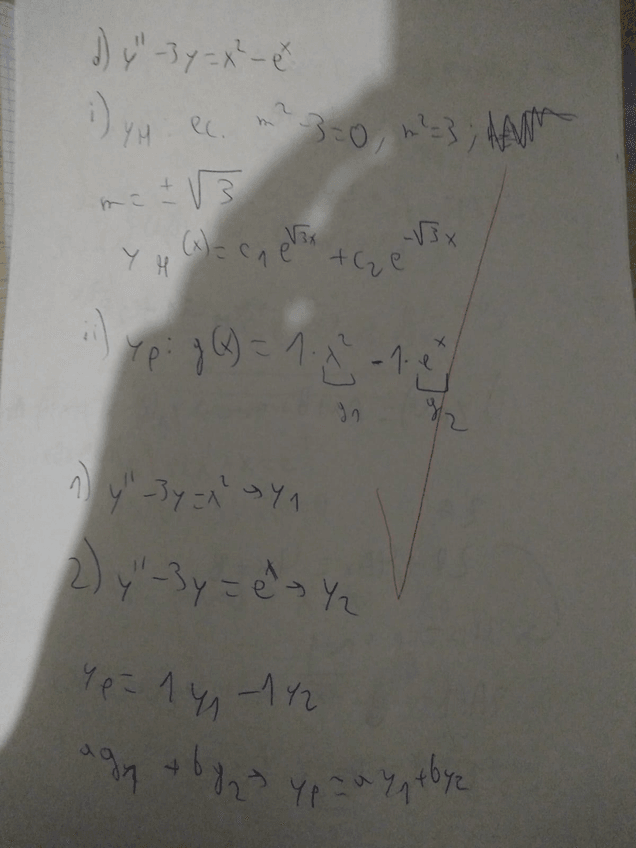 d) y'' - 3y = x² - eˣ
i) y_H ec. m² - 3 = 0, m² = 3 ;
m = ± √3
y_H (x) = c₁ e^{√3x} + c₂ e^{-√3 x}
ii) y_p : g(x) = 1 · x² - 1 · eˣ
g₁ g₂
1) y'' - 3y = x² → y₁
2) y'' - 3y = eˣ → y₂
y_p = 1 y₁ - 1 y₂
a g₁ + b g₂ → y_p = a y₁ + b y₂